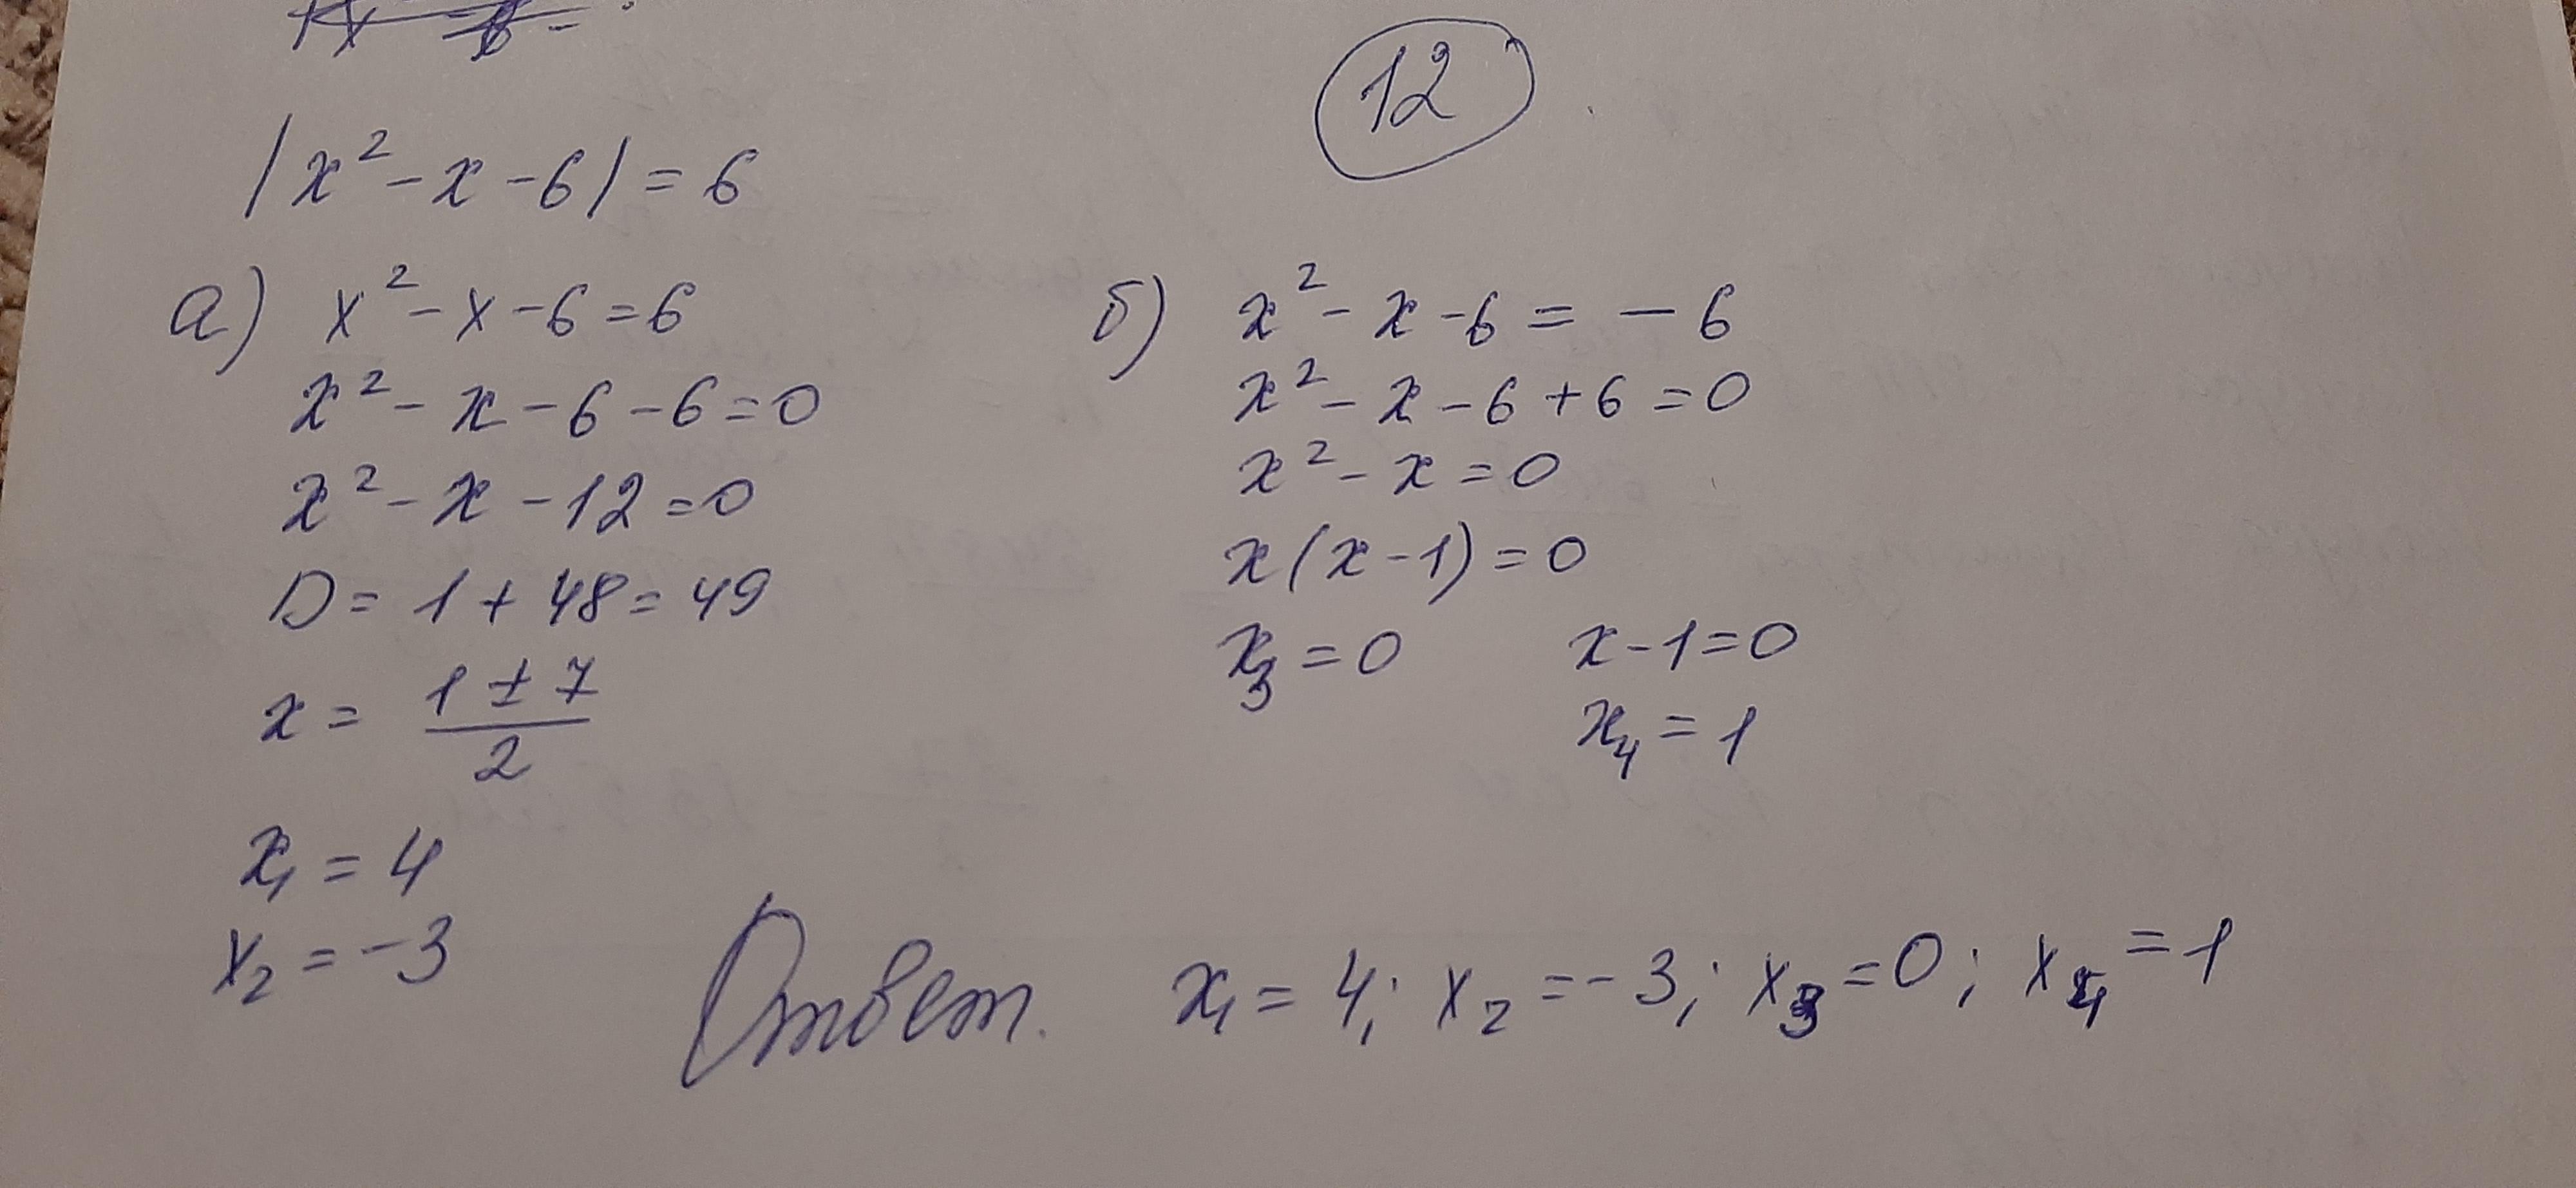 12
|x² - x - 6| = 6
а) x² - x - 6 = 6
x² - x - 6 - 6 = 0
x² - x - 12 = 0
D = 1 + 48 = 49
x = (1 ± 7)/2
x₁ = 4
x₂ = -3
б) x² - x - 6 = - 6
x² - x - 6 + 6 = 0
x² - x = 0
x(x - 1) = 0
x₃ = 0 x - 1 = 0
x₄ = 1
Ответ. x₁ = 4; x₂ = -3; x₃ = 0; x₄ = 1